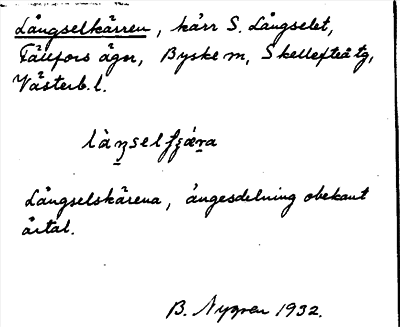 Långselkärren, kärr S. Långselet,
Fällfors ägor, Byske m, Skellefteå tg,
Västerb. l.
Långselskärena, ängesdelning obekant
årtal.
B. Nygren 1932.